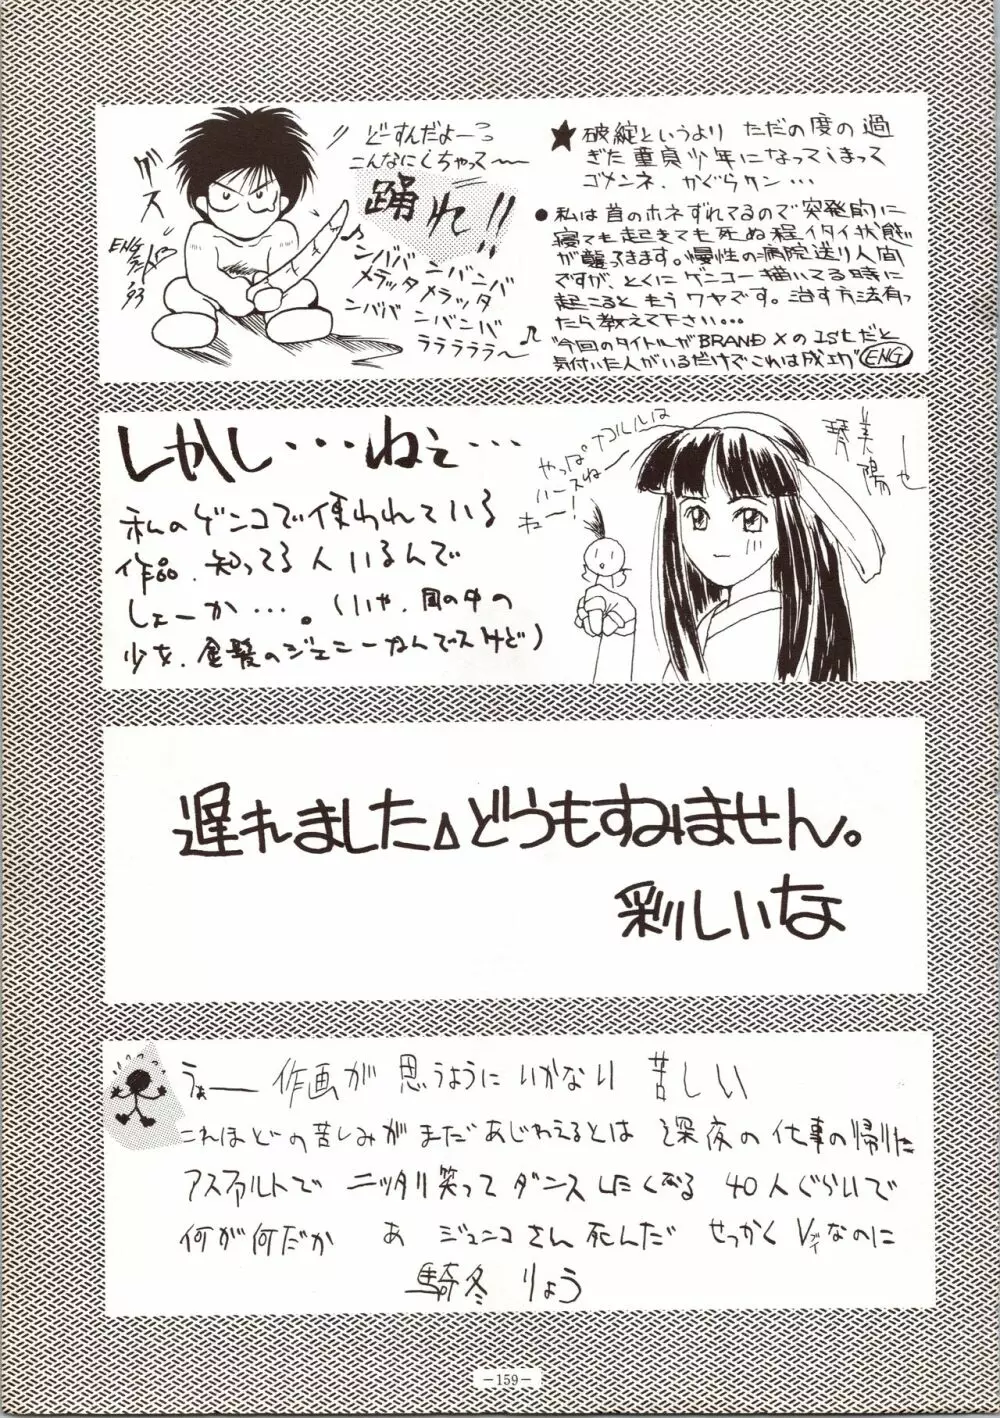 どーすんだよーっ
こんなにしちゃって〜
踊れ!!
ンババ ンバンバ
メラッタメラッタ
ンババ ンバンバ
ラララララ〜
グス
ENG
'93
★破綻というより ただの度の過
ぎた童貞少年になってしまって
ゴメンネ、かぐらクン…
●私は首のホネずれてるので突発的に
寝ても起きても死ぬ程イタイ状態
が襲ってきます。慢性の病院送り人間
ですが、とくにゲンコー描いてる時に
起こると もうワヤです。治す方法有っ
たら教えて下さい…
"今回のタイトルがBRAND Xの1stだと
気付いた人がいるだけでこれは成功" ENG
しかし・・・ねぇ・・・
私のゲンコで使われている
作品、知ってる人いるんで
しょーか…。(いや、目の中の
少女、金髪のジェニーなんですけど)
やっぱナコルルは
ハースねー
キュー!
琴美陽也
遅れました△どうもすみません。
彩しいな
うぉー 作画が 思うように いかない 苦しい
これほどの苦しみが まだ あじわえるとは 深夜の 仕事の帰りに
アスファルトで ニッタリ笑って ダンス したくなる 40人ぐらいで
何が何だか あ ジュンコさん 死んだ せっかく Vブイなのに
騎冬 りょう
−159−